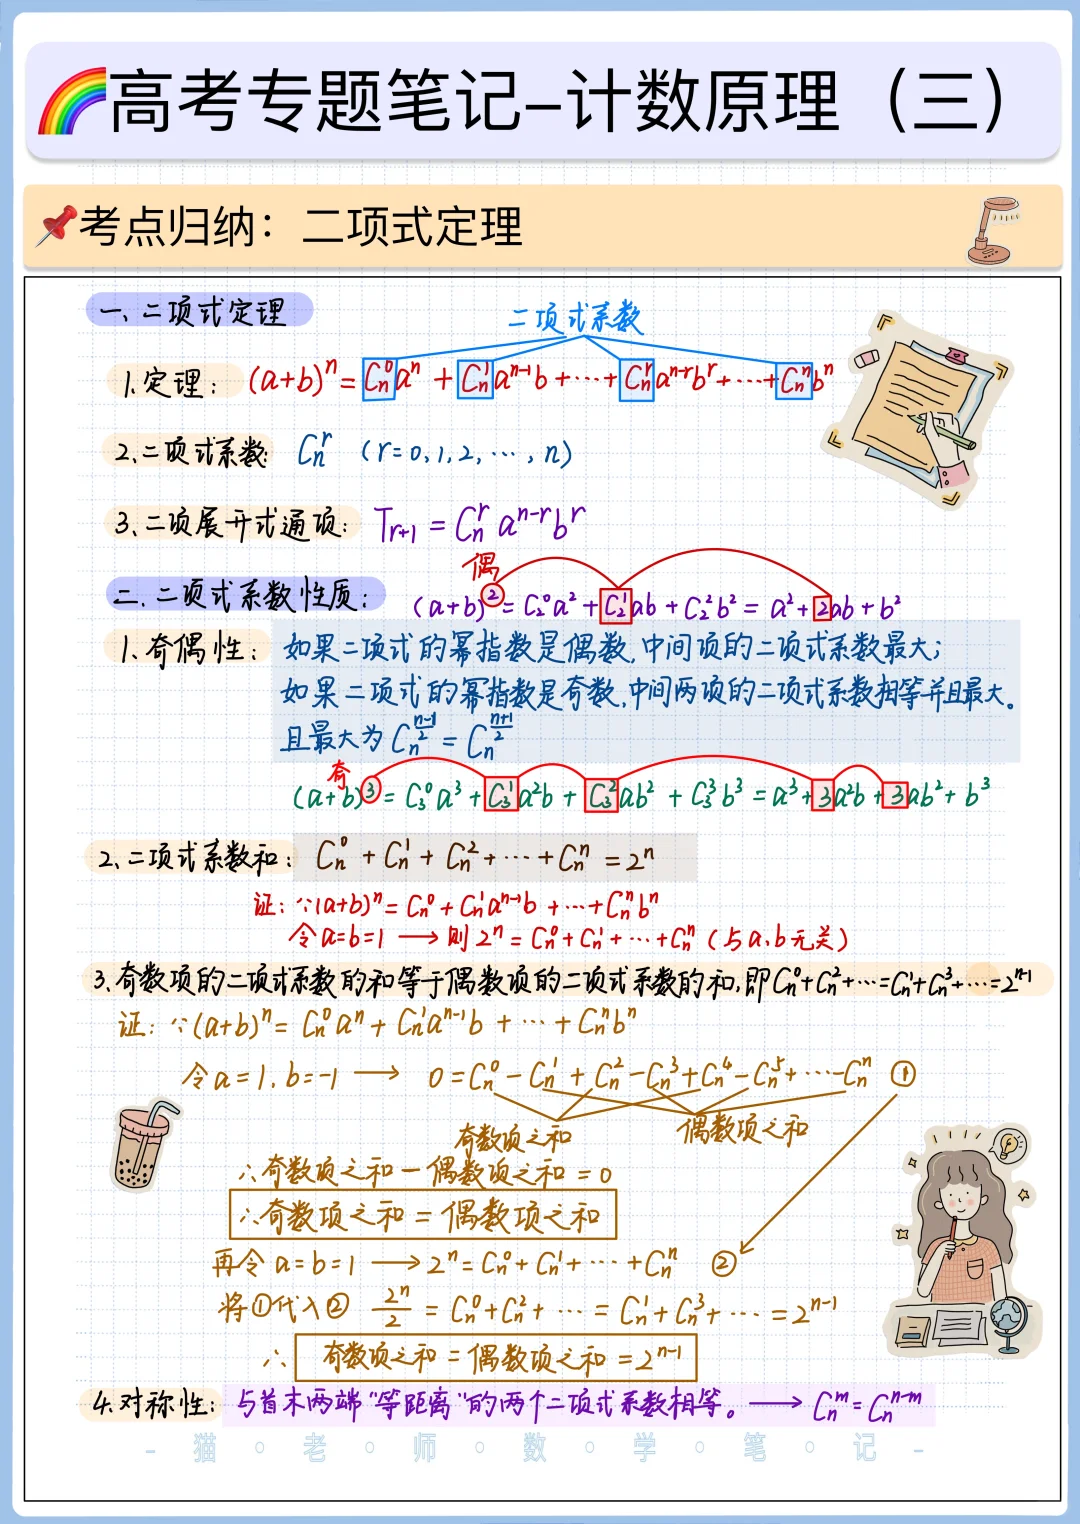 高考专题笔记-计数原理（三）
考点归纳：二项式定理
一、二项式定理
二项式系数
1.定理：(a+b)^n = C_n^0 a^n + C_n^1 a^{n-1}b + ⋯ + C_n^r a^{n-r}b^r + ⋯ + C_n^n b^n
2.二项式系数：C_n^r （r=0,1,2,⋯,n）
3.二项展开式通项：T_{r+1} = C_n^r a^{n-r}b^r
偶
二.二项式系数性质：(a+b)^2 = C_2^0 a^2 + C_2^1 ab + C_2^2 b^2 = a^2 + 2ab + b^2
1.奇偶性：如果二项式的幂指数是偶数,中间项的二项式系数最大；
如果二项式的幂指数是奇数,中间两项的二项式系数相等并且最大。
且最大为 C_n^{\frac{n-1}{2}} = C_n^{\frac{n+1}{2}}
奇
(a+b)^3 = C_3^0 a^3 + C_3^1 a^2b + C_3^2 ab^2 + C_3^3 b^3 = a^3 + 3a^2b + 3ab^2 + b^3
2.二项式系数和：C_n^0 + C_n^1 + C_n^2 + ⋯ + C_n^n = 2^n
证：∵(a+b)^n = C_n^0 + C_n^1 a^{n-1}b + ⋯ + C_n^n b^n
令a=b=1 ⟶ 则 2^n = C_n^0 + C_n^1 + ⋯ + C_n^n（与a,b无关）
3.奇数项的二项式系数的和等于偶数项的二项式系数的和,即C_n^0+C_n^2+⋯=C_n^1+C_n^3+⋯=2^{n-1}
证：∵(a+b)^n = C_n^0 a^n + C_n^1 a^{n-1}b + ⋯ + C_n^n b^n
令a=1,b=-1 ⟶ 0=C_n^0 - C_n^1 + C_n^2 - C_n^3 + C_n^4 - C_n^5 + ⋯ - C_n^n ①
奇数项之和 偶数项之和
∴奇数项之和-偶数项之和=0
∴奇数项之和=偶数项之和
再令a=b=1 ⟶ 2^n = C_n^0 + C_n^1 + ⋯ + C_n^n ②
将①代入② \frac{2^n}{2} = C_n^0 + C_n^2 + ⋯ = C_n^1 + C_n^3 + ⋯ = 2^{n-1}
∴ 奇数项之和=偶数项之和=2^{n-1}
4.对称性：与首末两端“等距离”的两个二项式系数相等。⟶ C_n^m = C_n^{n-m}
- 猫·老·师·数·学·笔·记 -